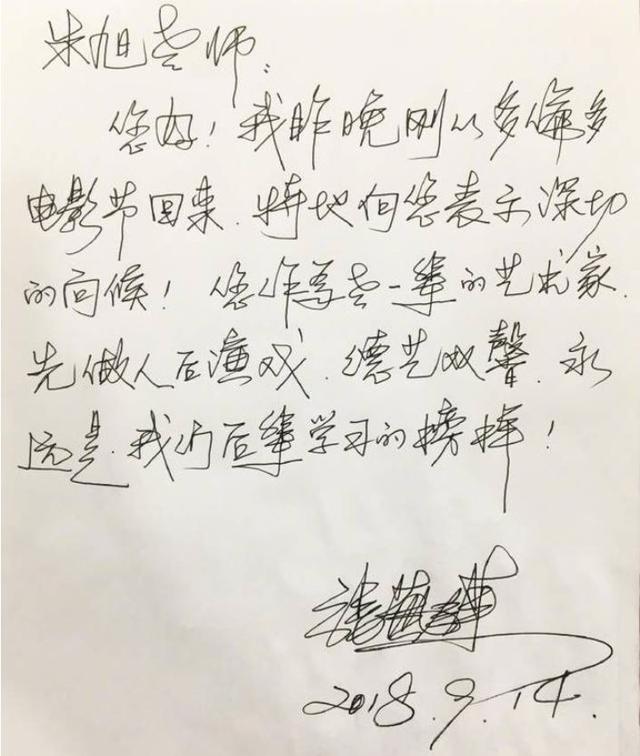 朱旭老师:
您好！我昨晚刚从多伦多
电影节回来.特地向您表示深切
的问候！您作为老一辈的艺术家.
先做人后演戏.德艺双馨.永
远是.我们后辈学习的榜样！
2018.9.14.